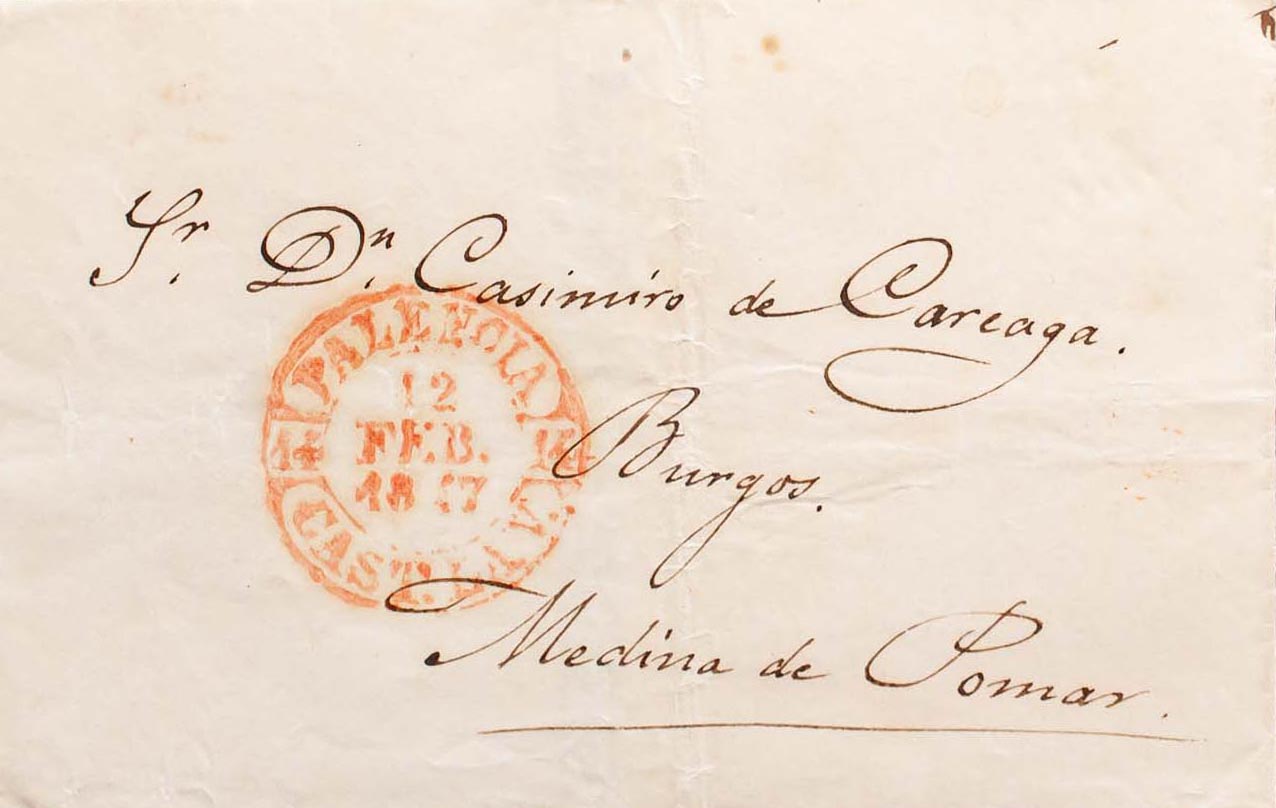 Sr. Dn. Casimiro de Careaga.
PALENCIA
12
FEB.
Burgos.
Medina de Pomar.